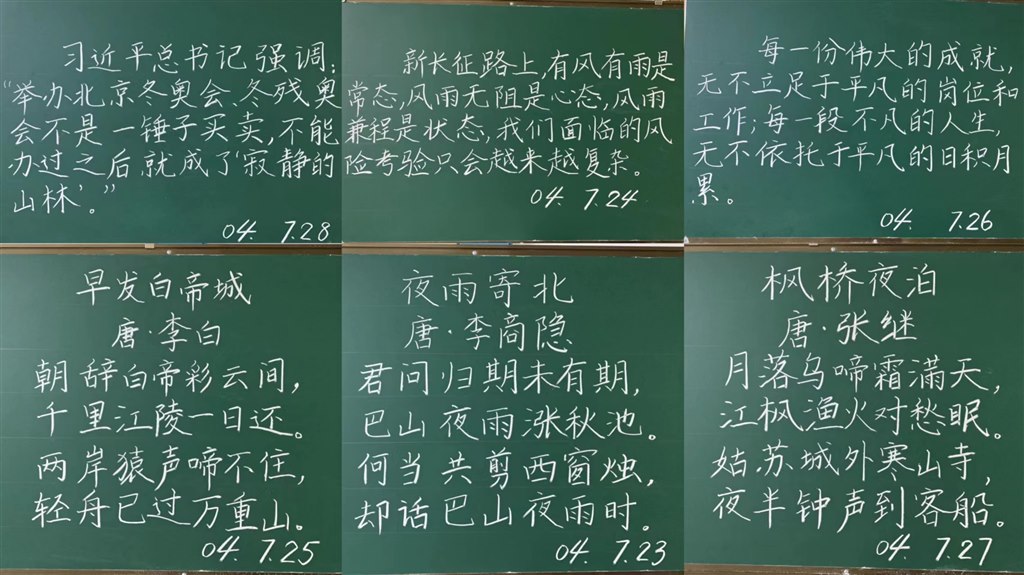 习近平总书记强调:
“举办北京冬奥会、冬残奥
会不是一锤子买卖,不能
办过之后,就成了‘寂静的
山林’。”
04. 7.28
新长征路上,有风有雨是
常态,风雨无阻是心态,风雨
兼程是状态,我们面临的风
险考验只会越来越复杂。
04. 7.24
每一份伟大的成就,
无不立足于平凡的岗位和
工作;每一段不凡的人生,
无不依托于平凡的日积月
累。
04. 7.26
早发白帝城
唐·李白
朝辞白帝彩云间,
千里江陵一日还。
两岸猿声啼不住,
轻舟已过万重山。
04. 7.25
夜雨寄北
唐·李商隐
君问归期未有期,
巴山夜雨涨秋池。
何当共剪西窗烛,
却话巴山夜雨时。
04. 7.23
枫桥夜泊
唐·张继
月落乌啼霜满天,
江枫渔火对愁眠。
姑苏城外寒山寺,
夜半钟声到客船。
04. 7.27